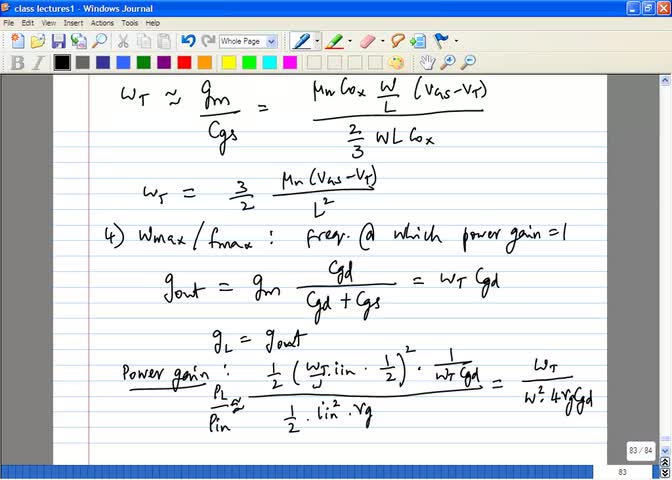 class lectures1 - Windows Journal
File Edit View Insert Actions Tools Help
Whole Page
B I
ωT ≈ gm / Cgs = μn Cox W/L (VGS – VT) / (2/3 WL Cox)
ωT = 3/2 μn (VGS – VT) / L²
4) ωmax / fmax : freq. @ which power gain = 1
gout = gm Cgd / (Cgd + Cgs) = ωT Cgd
gL = gout
Power gain : PL / Pin ≈ 1/2 (ωT/ω · iin · 1/2)² · 1/(ωT Cgd) / (1/2 · iin² · rg) = ωT / (ω² · 4 rg Cgd)
83 / 84
83